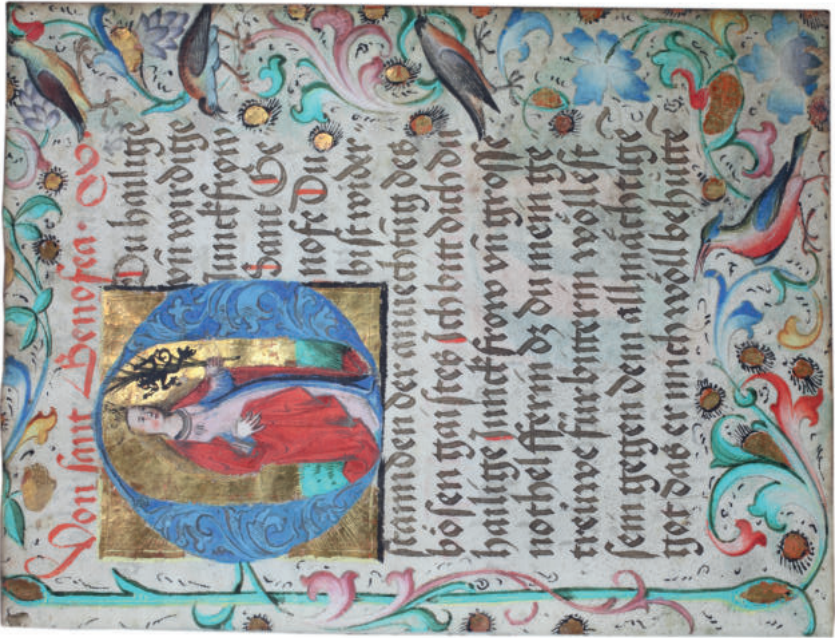 Von sant Genofea. O O.
Du hailige
vn̄ wirdige
Junckfrow
Sant Ge
nofe Du
bist wider
stannden der anuechtūg des
bösen gaistes Ich bitt dich du
hailige Junckfrow vn̄ grosse
nothelfferin dz du mein ge
treuwe fürbitterin wöllest
sein gegen dem allmächtigē
got das er mich wöll behüttē